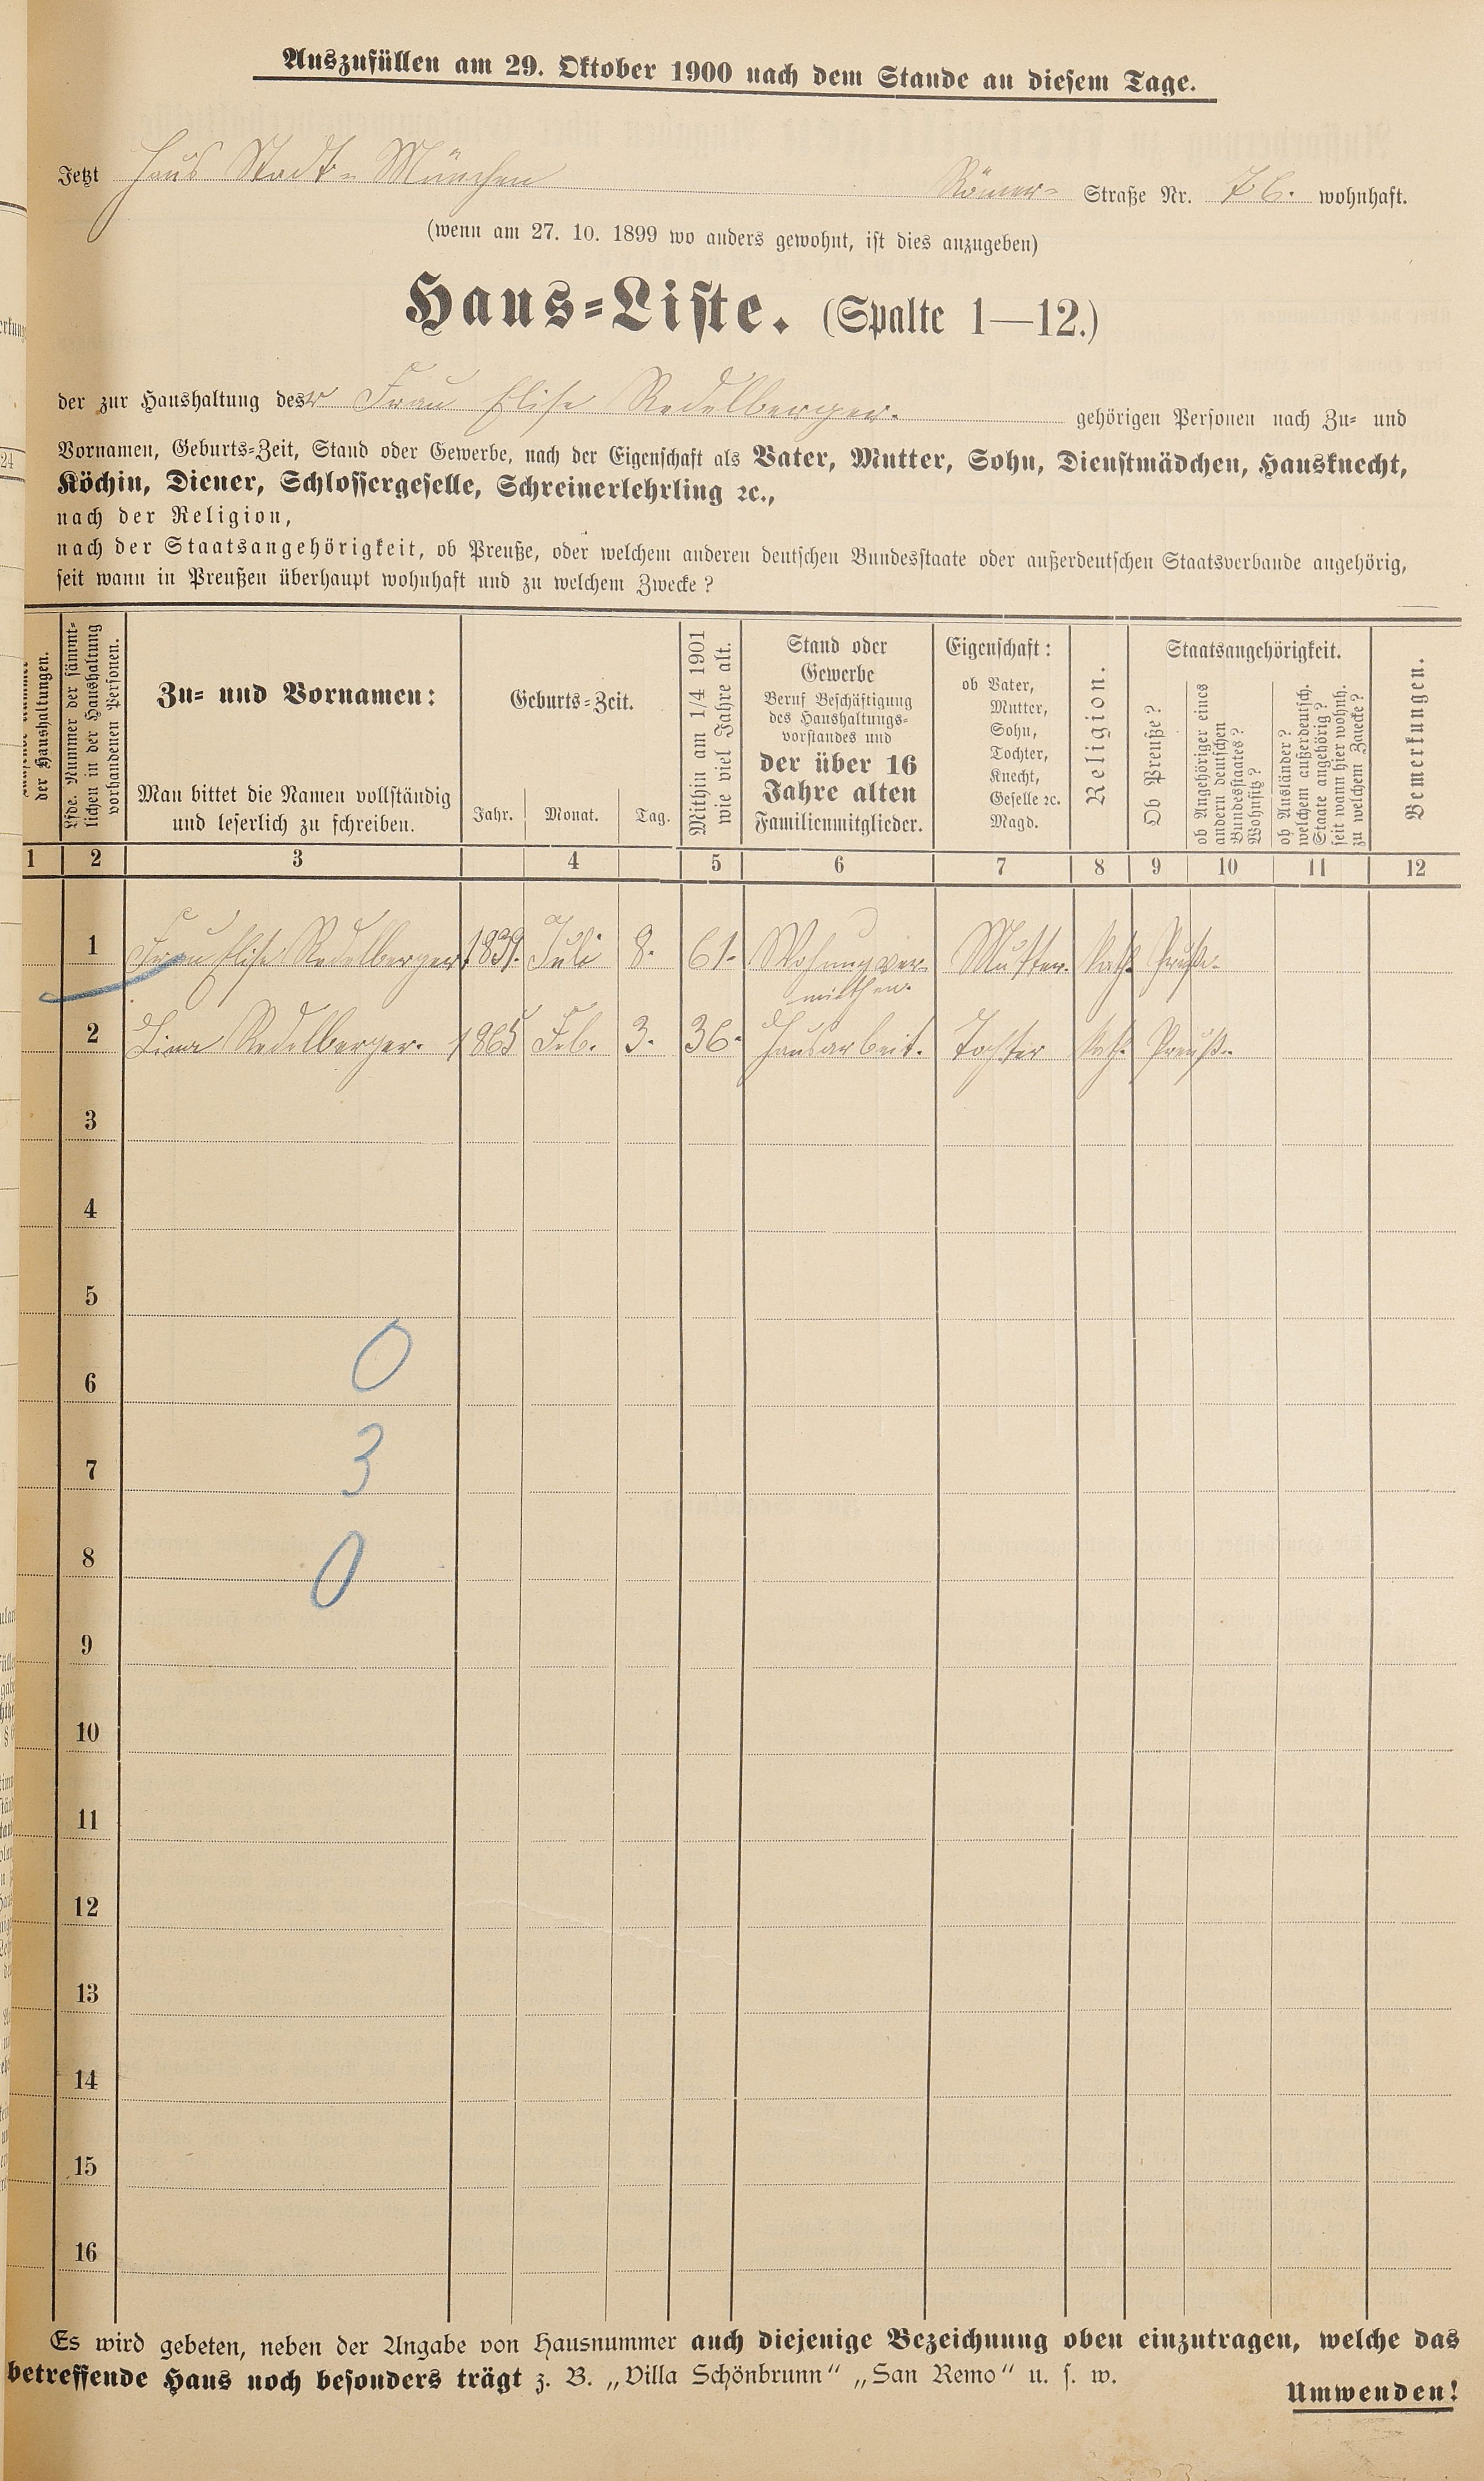 Auszufüllen am 29. Oktober 1900 nach dem Stande an diesem Tage.
Jetzt Haus Stadt-München Römer- Straße Nr. 76. wohnhaft.
(wenn am 27. 10. 1899 wo anders gewohnt, ist dies anzugeben)
Haus-Liste. (Spalte 1—12.)
der zur Haushaltung des r Frau Elise Redelberger. gehörigen Personen nach Zu- und
Vornamen, Geburts-Zeit, Stand oder Gewerbe, nach der Eigenschaft als Vater, Mutter, Sohn, Dienstmädchen, Hausknecht,
Köchin, Diener, Schlossergeselle, Schreinerlehrling ꝛc.,
nach der Religion,
nach der Staatsangehörigkeit, ob Preuße, oder welchem anderen deutschen Bundesstaate oder außerdeutschen Staatsverbande angehörig,
seit wann in Preußen überhaupt wohnhaft und zu welchem Zwecke?
der Haushaltungen.
Lfde. Nummer der sämmt-
lichen in der Haushaltung
vorhandenen Personen.
Zu- und Vornamen:
Man bittet die Namen vollständig
und leserlich zu schreiben.
Geburts-Zeit.
Jahr. Monat. Tag.
Mithin am 1/4 1901
wie viel Jahre alt.
Stand oder
Gewerbe
Beruf Beschäftigung
des Haushaltungs-
vorstandes und
der über 16
Jahre alten
Familienmitglieder.
Eigenschaft:
ob Vater,
Mutter,
Sohn,
Tochter,
Knecht,
Geselle ꝛc.
Magd.
Religion.
Staatsangehörigkeit.
Ob Preuße?
ob Angehöriger eines
andern deutschen
Bundesstaates?
Wohnsitz?
ob Ausländer?
welchem außerdeutsch.
Staate angehörig?
seit wann hier wohnh.
zu welchem Zwecke?
Bemerkungen.
1 2 3 4 5 6 7 8 9 10 11 12
1 Frau Elise Redelberger 1839. Juli 8. 61. Wohnungver- Mutter. Kath. Preuße.
miethen.
2 Lina Redelberger. 1865 Feb. 3. 36. Hausarbeit. Tochter Kath. Preuße.
3
4
5
0
6
3
7
0
8
9
10
11
12
13
14
15
16
Es wird gebeten, neben der Angabe von Hausnummer auch diejenige Bezeichnung oben einzutragen, welche das
betreffende Haus noch besonders trägt z. B. „Villa Schönbrunn“ „San Remo“ u. s. w.
Umwenden!